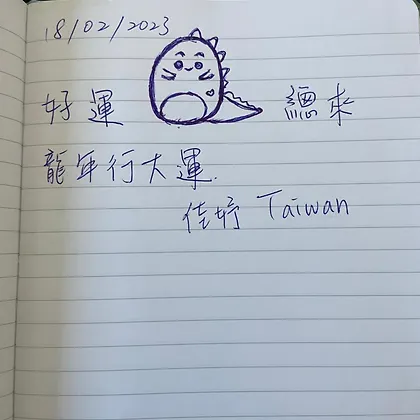 18/02/2023
好運 總來
龍年行大運.
佳妤 Taiwan